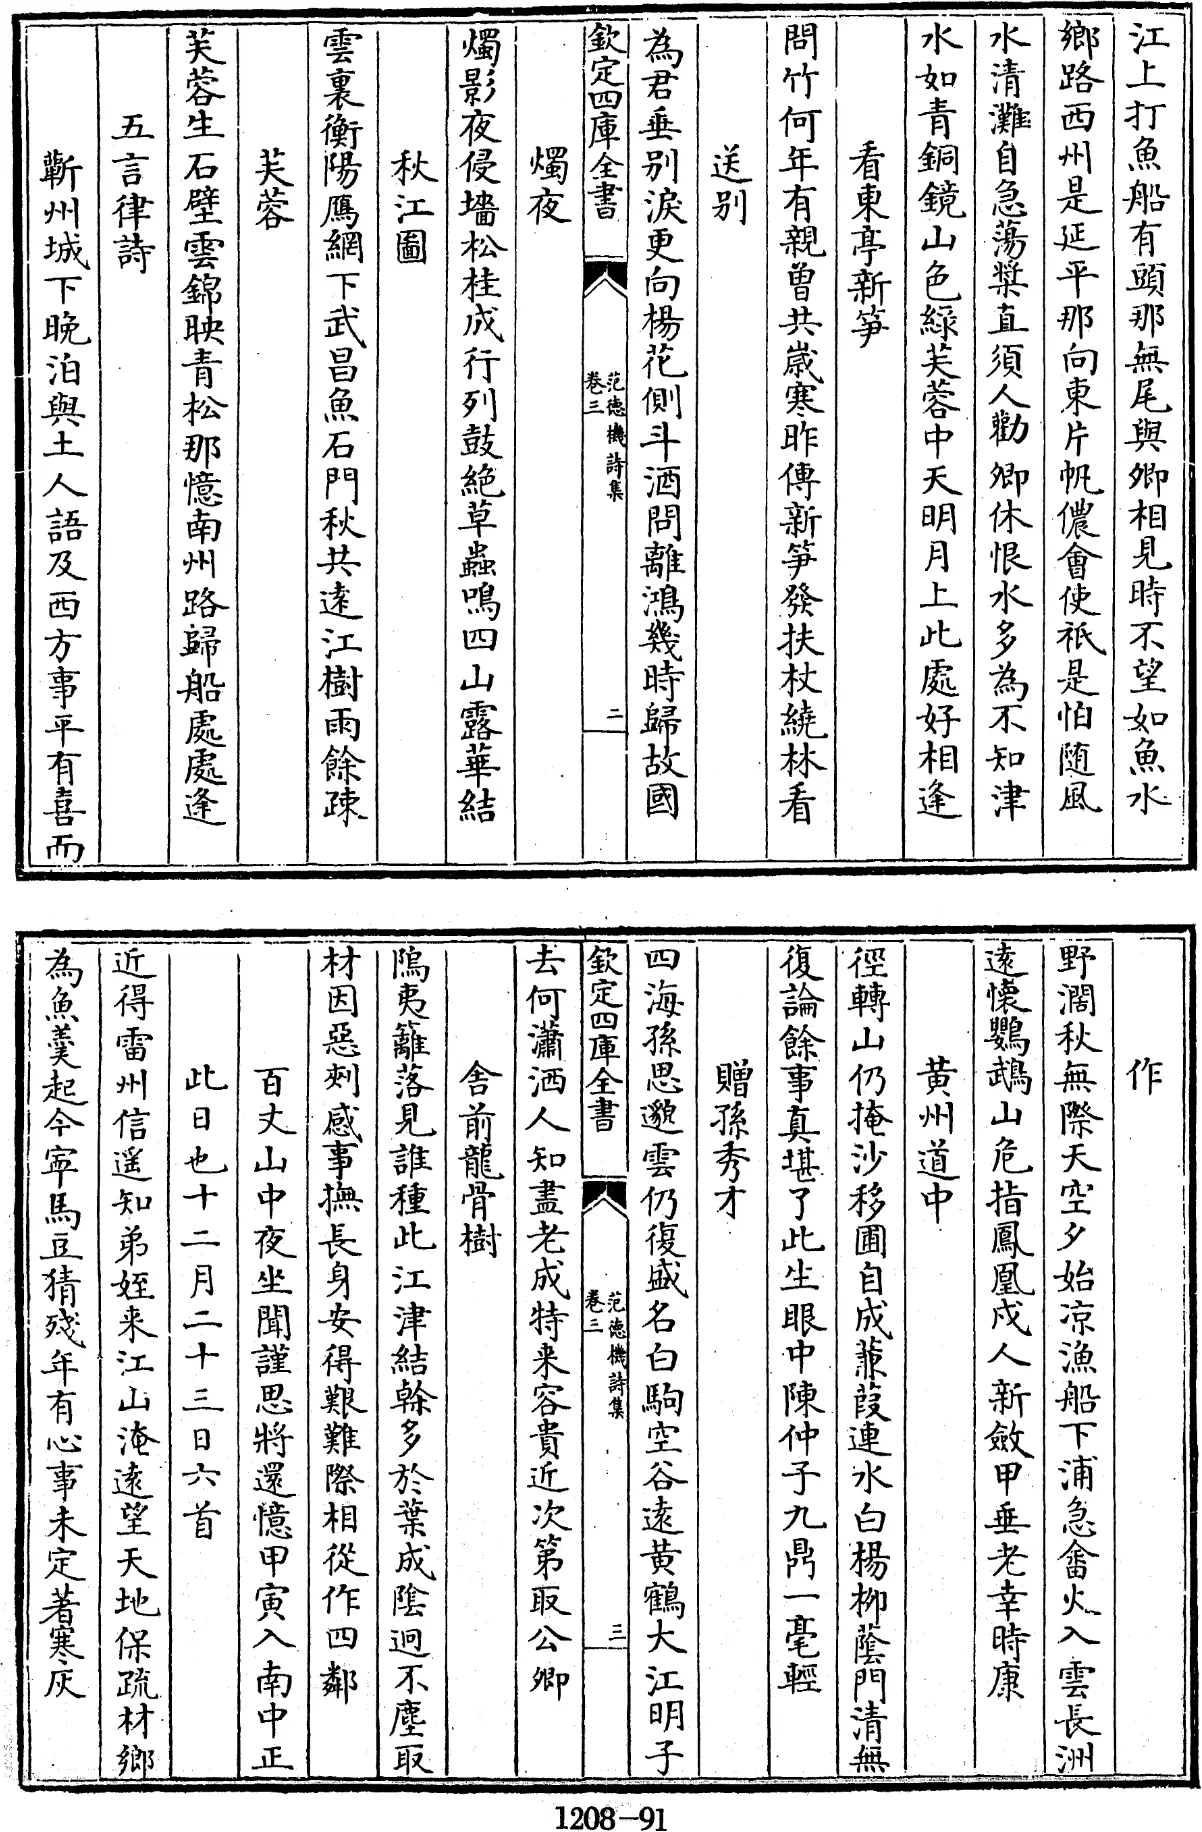 江上打魚船有頭那無尾與卿相見時不望如魚水
鄉路西州是延平那向東片帆儂會使祇是怕随風
水清灘自急蕩槳直須人勸卿休恨水多為不知津
水如青銅鏡山色綠芙蓉中天明月上此處好相逢
看東亭新笋
問竹何年有親曾共嵗寒昨傳新笋發扶杖繞林看
送别
為君垂别淚更向楊花側斗酒問離鴻幾時歸故國
欽定四庫全書
范德機詩集
卷三
二
燭夜
燭影夜侵墻松桂成行列鼓絶草蟲鳴四山露華結
秋江圖
雲裏衡陽鴈網下武昌魚石門秋共逺江樹雨餘疎
芙蓉
芙蓉生石壁雲錦映青松那憶南州路歸船處處逢
五言律詩
蘄州城下晩泊與土人語及西方事平有喜而
作
野濶秋無際天空夕始凉漁船下浦急畬火入雲長洲
逺懷鸚鵡山危指鳳凰戍人新斂甲垂老幸時康
黄州道中
徑轉山仍掩沙移圃自成蒹葭連水白楊柳蔭門清無
復論餘事真堪了此生眼中陳仲子九鼎一毫輕
贈孫秀才
四海孫思邈雲仍復盛名白駒空谷逺黄鶴大江明子
欽定四庫全書
范德機詩集
卷三
三
去何瀟洒人知盡老成特来容貴近次第取公卿
舍前龍骨樹
隝夷籬落見誰種此江津結榦多於葉成陰迥不塵取
材因惡刺感事撫長身安得艱難際相從作四鄰
百丈山中夜坐聞謹思將還憶甲寅入南中正
此日也十二月二十三日六首
近得雷州信遥知弟姪来江山淹逺望天地保疏材鄉
為魚羮起今寧馬豆猜殘年有心事未定著寒灰
1208-91